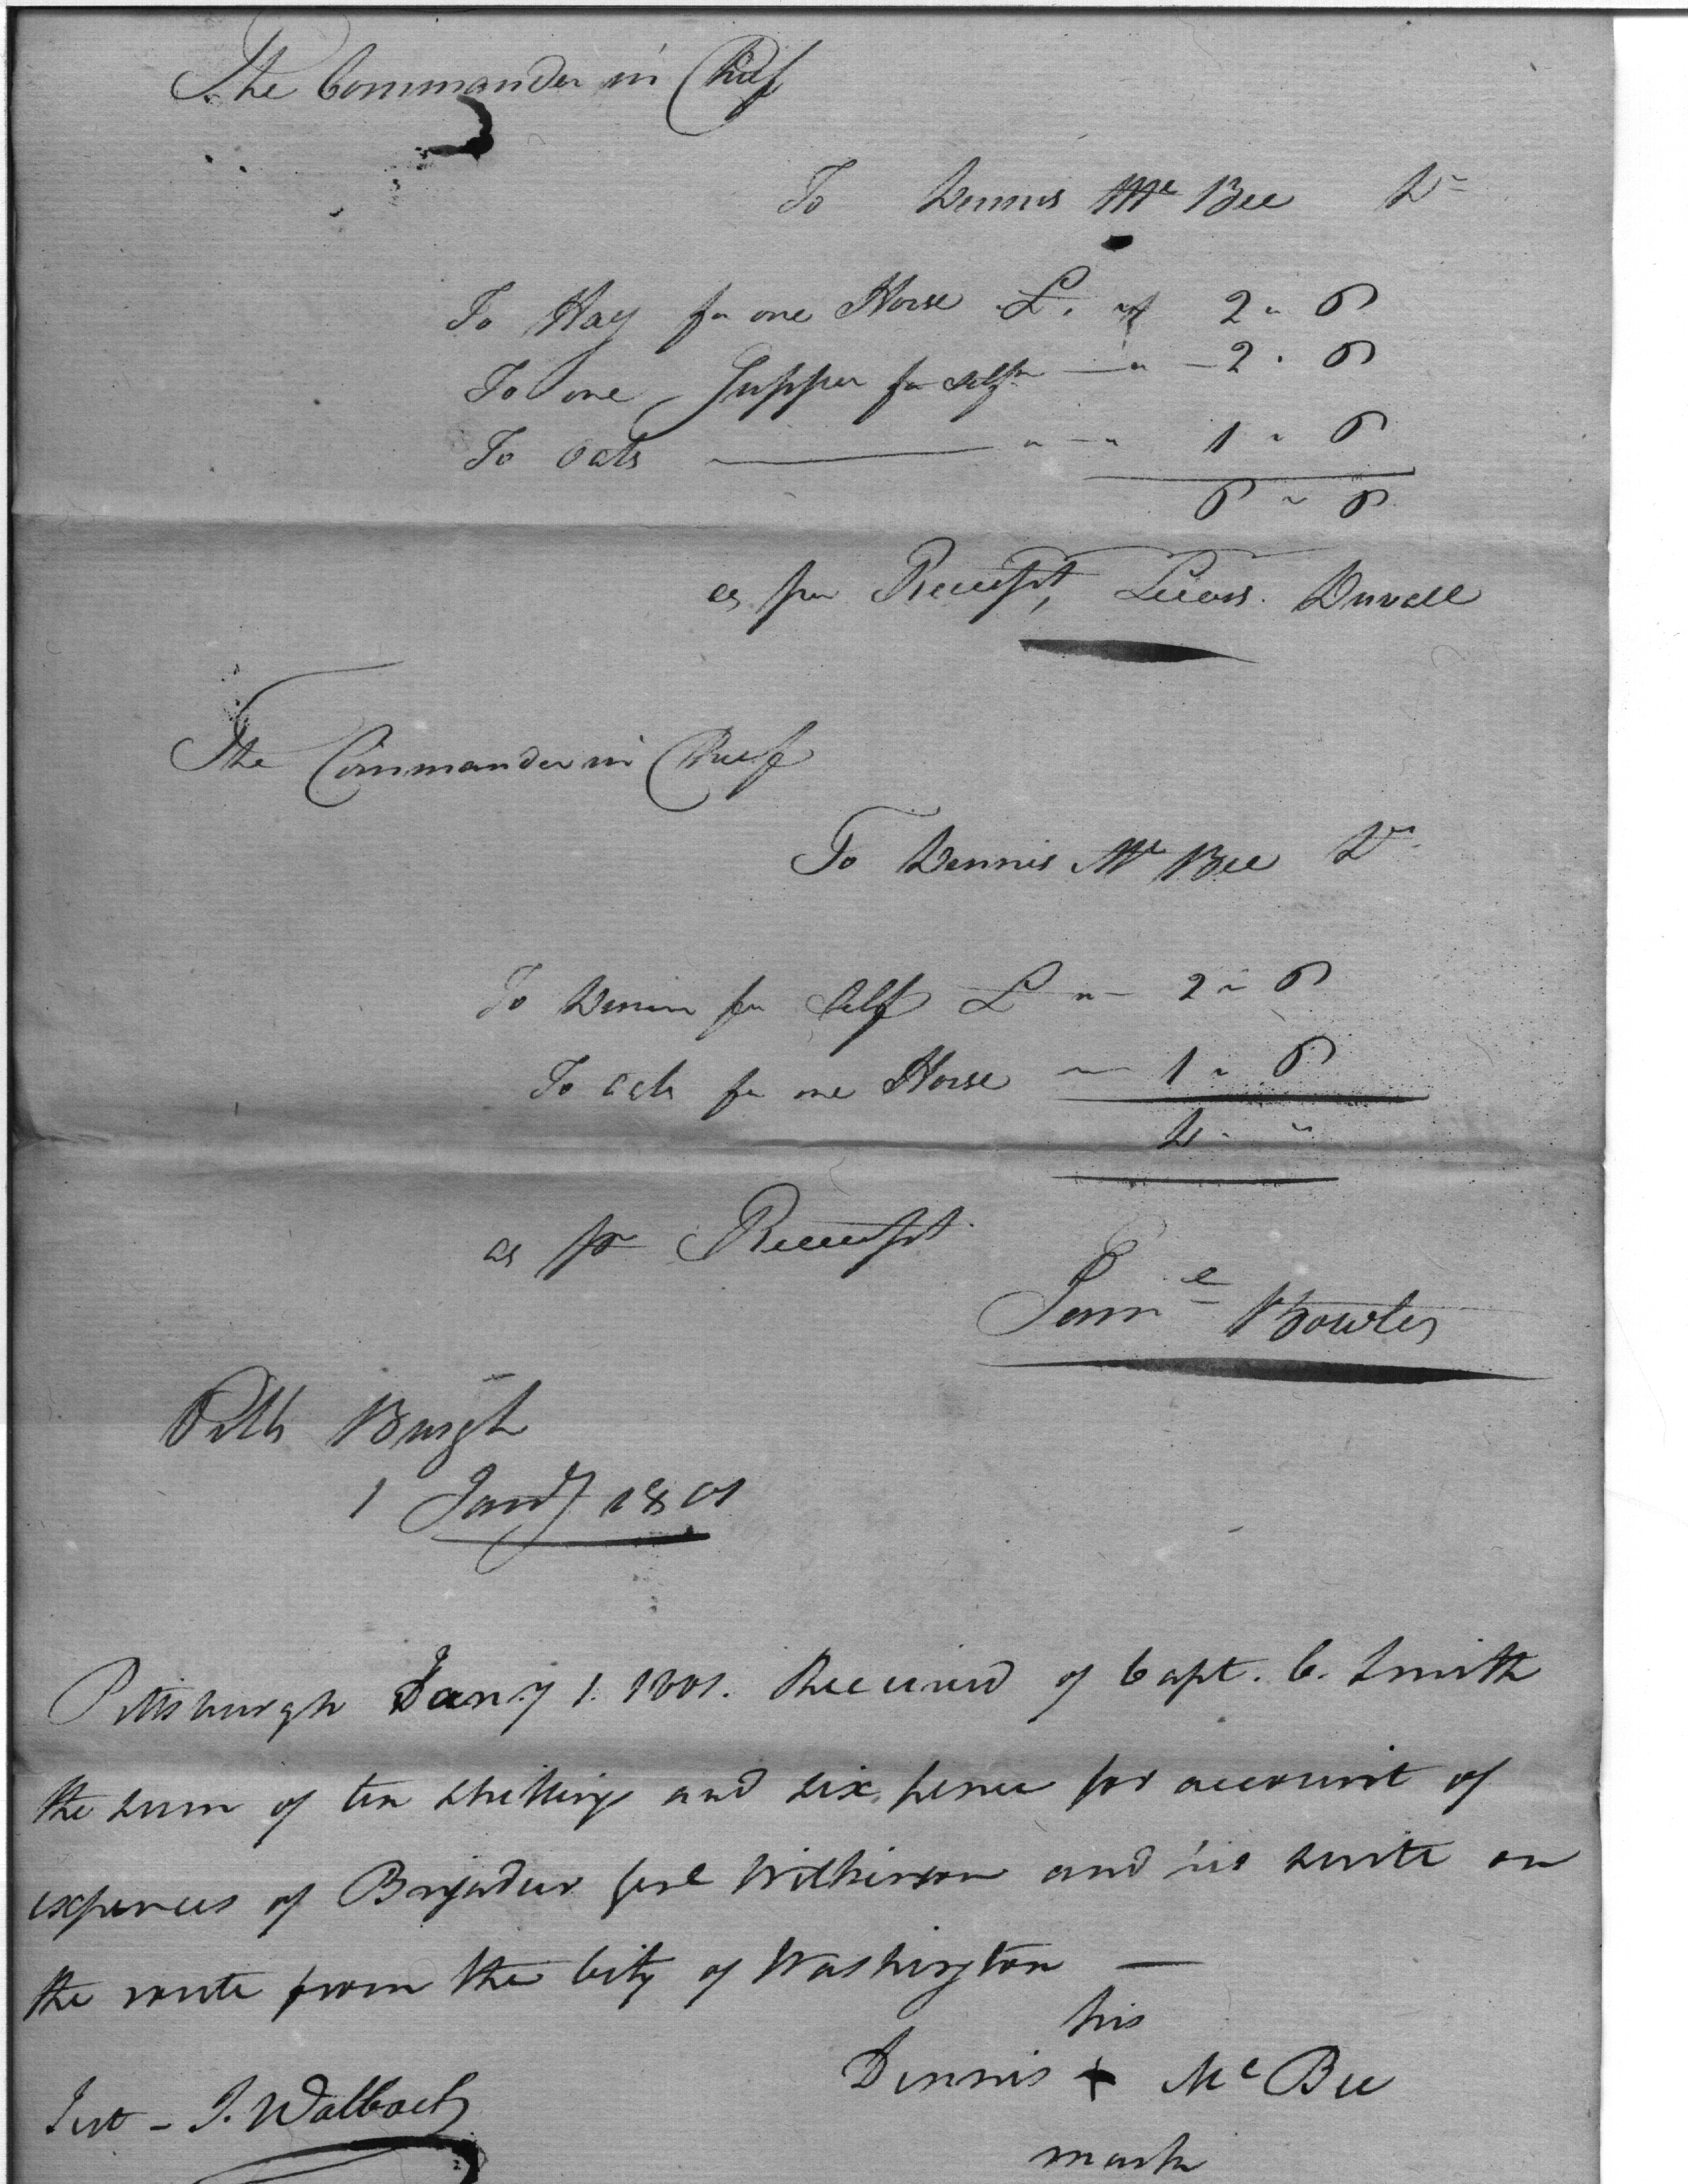 The Commander in Chief
To Dennis Mc Bee Dr
To Hay for one Horse £ " 2 " 6
To one Supper for self " 2 " 6
To oats " " 1 " 6
6 " 6
as per Receipt, Duvall
The Commander in Chief
To Dennis Mc Bee Dr
To Dinner for Self £ " 2 " 6
To oats for one Horse 1 " 6
4 " "
as pr Receipt
Bowles
Pitts Burgh
1 Jany 1801
Pittsburgh Jan.y 1. 1801. Received of Capt. C. Smith
the sum of ten shillings and six pence for account of
expences of Brigadier Genl Wilkinson and his suite on
the route from the City of Washington —
his
Dennis + Mc Bee
mark
Test - J. Walbach